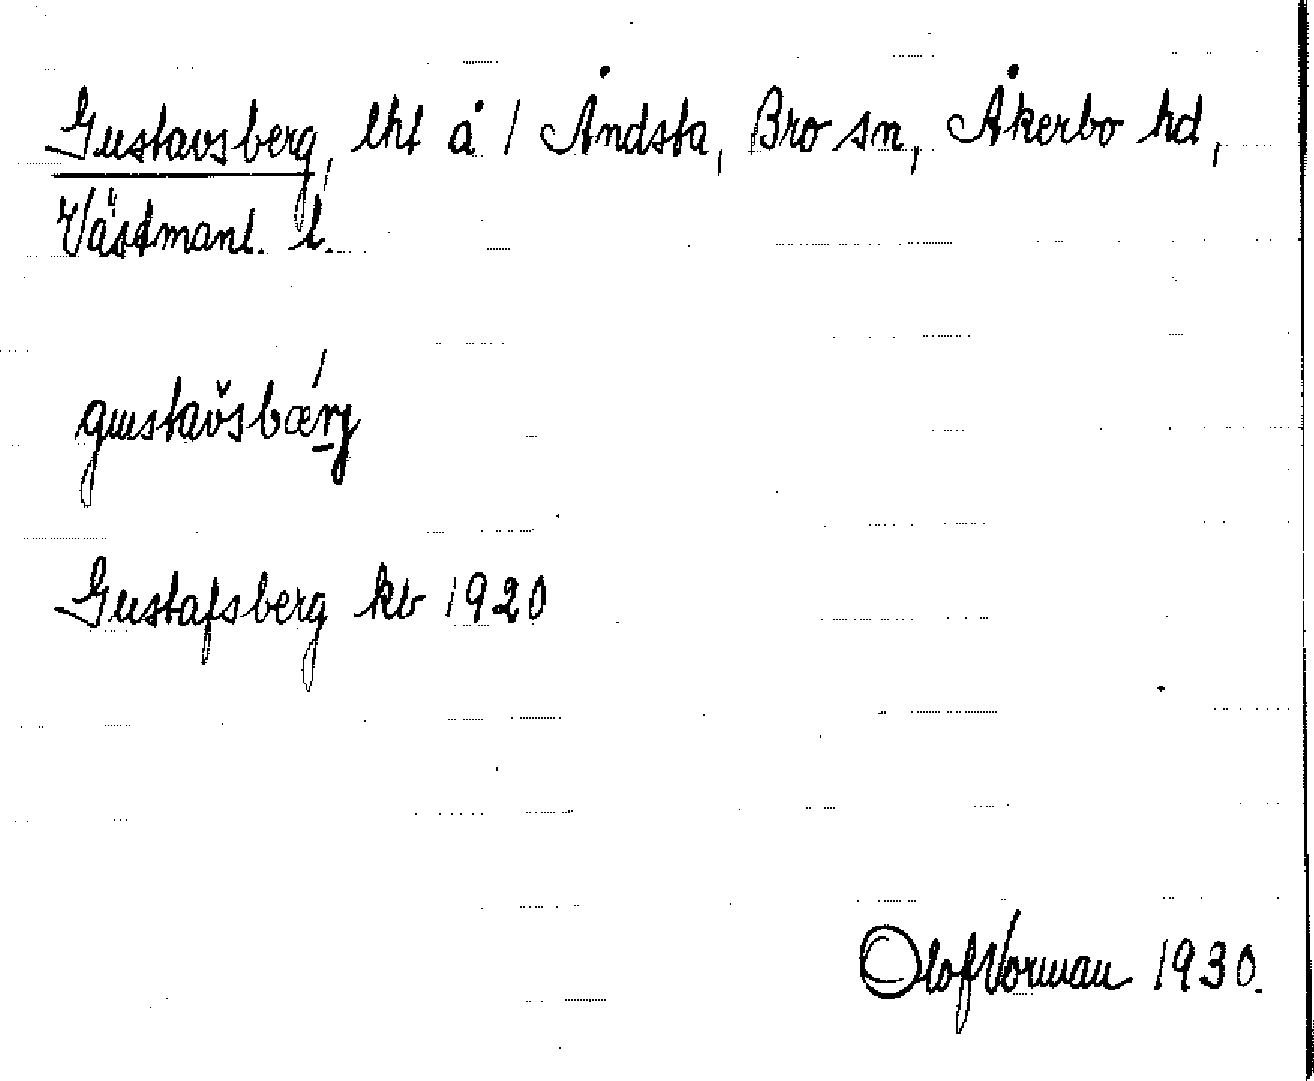 Gustavsberg, lht å 1 Åndsta, Bro sn, Åkerbo hd,
Västmanl. l.
gustavsbærj
Gustafsberg kb 1920
Olof Norman 1930.